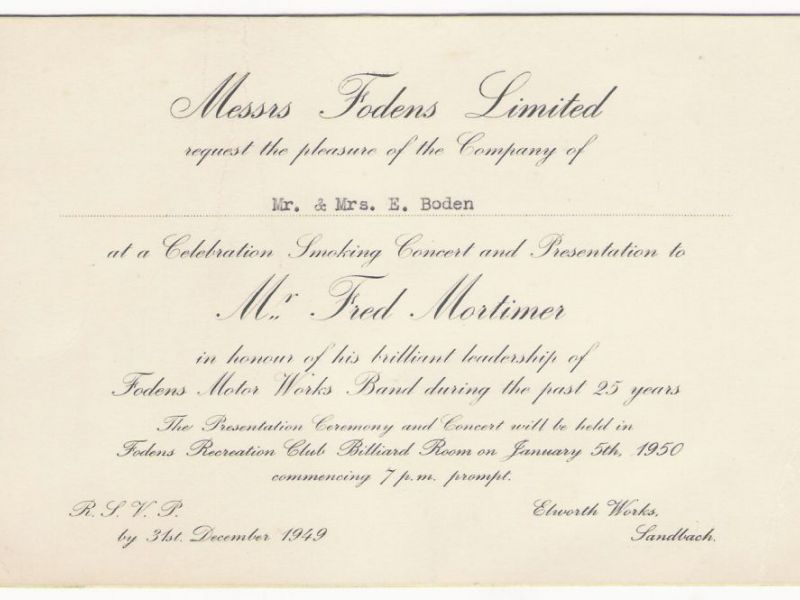 Messrs Fodens Limited
request the pleasure of the Company of
Mr. & Mrs. E. Boden
at a Celebration Smoking Concert and Presentation to
Mr. Fred Mortimer
in honour of his brilliant leadership of
Fodens Motor Works Band during the past 25 years
The Presentation Ceremony and Concert will be held in
Fodens Recreation Club Billiard Room on January 5th, 1950
commencing 7 p.m. prompt.
R. S. V. P.
by 31st. December 1949
Elworth Works,
Sandbach.